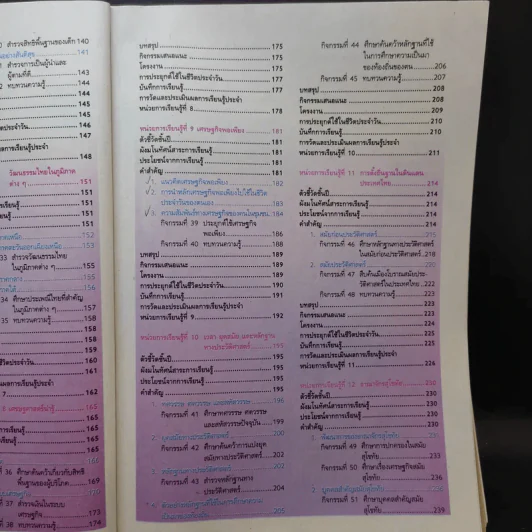 0 สำรวจสิทธิพื้นฐานของเด็ก 140
141
สำรวจการเป็นผู้นำและ
ผู้ตามที่ดี 143
2 ทบทวนความรู้ 144
144
145
145
ชีวิตประจำวัน 146
147
การเรียนรู้ประจำ
148
วัฒนธรรมไทยในภูมิภาค
ต่าง ๆ 151
151
151
151
151
152
153
33 สำรวจวัฒนธรรมไทย
ในภูมิภาคต่าง ๆ 155
155
156
34 ศึกษาประเพณีไทยที่สำคัญ
ในภูมิภาคต่าง ๆ 157
35 ทบทวนความรู้ 158
158
158
159
ชีวิตประจำวัน 160
161
ผลการเรียนรู้ประจำ
7 162
เศรษฐศาสตร์น่ารู้ 165
165
165
165
165
166
36 ศึกษาค้นคว้าเกี่ยวกับสิทธิ
พื้นฐานของผู้บริโภค 169
170
37 สำรวจเงินในระบบ
เศรษฐกิจ 173
38 ทบทวนความรู้ 174
บทสรุป 175
กิจกรรมเสนอแนะ 177
โครงงาน 177
การประยุกต์ใช้ในชีวิตประจำวัน 177
บันทึกการเรียนรู้ 177
การวัดและประเมินผลการเรียนรู้ประจำ
หน่วยการเรียนรู้ที่ 8 178
หน่วยการเรียนรู้ที่ 9 เศรษฐกิจพอเพียง 181
ตัวชี้วัดชั้นปี 181
ผังมโนทัศน์สาระการเรียนรู้ 181
ประโยชน์จากการเรียนรู้ 181
คำสำคัญ 181
1. แนวคิดเศรษฐกิจพอเพียง 182
2. การนำหลักเศรษฐกิจพอเพียงไปใช้ในชีวิต
ประจำวันของตนเอง 183
3. ความสัมพันธ์ทางเศรษฐกิจของคนในชุมชน 184
กิจกรรมที่ 39 ประยุกต์ใช้เศรษฐกิจ
พอเพียง 186
กิจกรรมที่ 40 ทบทวนความรู้ 188
บทสรุป 189
กิจกรรมเสนอแนะ 189
โครงงาน 189
การประยุกต์ใช้ในชีวิตประจำวัน 190
บันทึกการเรียนรู้ 191
การวัดและประเมินผลการเรียนรู้ประจำ
หน่วยการเรียนรู้ที่ 9 192
หน่วยการเรียนรู้ที่ 10 เวลา ยุคสมัย และหลักฐาน
ทางประวัติศาสตร์ 195
ตัวชี้วัดชั้นปี 195
ผังมโนทัศน์สาระการเรียนรู้ 195
ประโยชน์จากการเรียนรู้ 195
คำสำคัญ 195
1. ทศวรรษ ศตวรรษ และสหัสวรรษ 196
กิจกรรมที่ 41 ศึกษาทศวรรษ ศตวรรษ
และสหัสวรรษปัจจุบัน 199
2. ยุคสมัยทางประวัติศาสตร์ 200
กิจกรรมที่ 42 ศึกษาค้นคว้าการแบ่งยุค
สมัยทางประวัติศาสตร์ 202
3. หลักฐานทางประวัติศาสตร์ 202
กิจกรรมที่ 43 สำรวจหลักฐานทาง
ประวัติศาสตร์ 204
205
กิจกรรมที่ 44 ศึกษาค้นคว้าหลักฐานที่ใช้
ในการศึกษาความเป็นมา
ของท้องถิ่นของตน 206
กิจกรรมที่ 45 ทบทวนความรู้ 207
บทสรุป 208
กิจกรรมเสนอแนะ 208
โครงงาน 209
การประยุกต์ใช้ในชีวิตประจำวัน 210
บันทึกการเรียนรู้ 210
การวัดและประเมินผลการเรียนรู้ประจำ
หน่วยการเรียนรู้ที่ 10 211
หน่วยการเรียนรู้ที่ 11 การตั้งถิ่นฐานในดินแดน
ประเทศไทย 214
ตัวชี้วัดชั้นปี 214
ผังมโนทัศน์สาระการเรียนรู้ 214
ประโยชน์จากการเรียนรู้ 214
คำสำคัญ 214
1. สมัยก่อนประวัติศาสตร์ 215
กิจกรรมที่ 46 ศึกษาหลักฐานทางประวัติศาสตร์
ในสมัยก่อนประวัติศาสตร์ 218
2. สมัยประวัติศาสตร์ 219
กิจกรรมที่ 47 สืบค้นเมืองโบราณสมัยประ-
วัติศาสตร์ในประเทศไทย 222
กิจกรรมที่ 48 ทบทวนความรู้ 223
บทสรุป 223
กิจกรรมเสนอแนะ 223
โครงงาน 224
การประยุกต์ใช้ในชีวิตประจำวัน 225
บันทึกการเรียนรู้ 225
การวัดและประเมินผลการเรียนรู้ประจำ
หน่วยการเรียนรู้ที่ 11 226
หน่วยการเรียนรู้ที่ 12 อาณาจักรสุโขทัย 230
ตัวชี้วัดชั้นปี 230
ผังมโนทัศน์สาระการเรียนรู้ 230
ประโยชน์จากการเรียนรู้ 230
คำสำคัญ 230
กิจกรรมที่ 49 ศึกษาการปกครองในสมัย
สุโขทัย 233
กิจกรรมที่ 50 ศึกษาเรื่องเศรษฐกิจสมัย
สุโขทัย 235
3. บุคคลสำคัญสมัยสุโขทัย 236
กิจกรรมที่ 51 ศึกษาบุคคลสำคัญสมัย
สุโขทัย 239